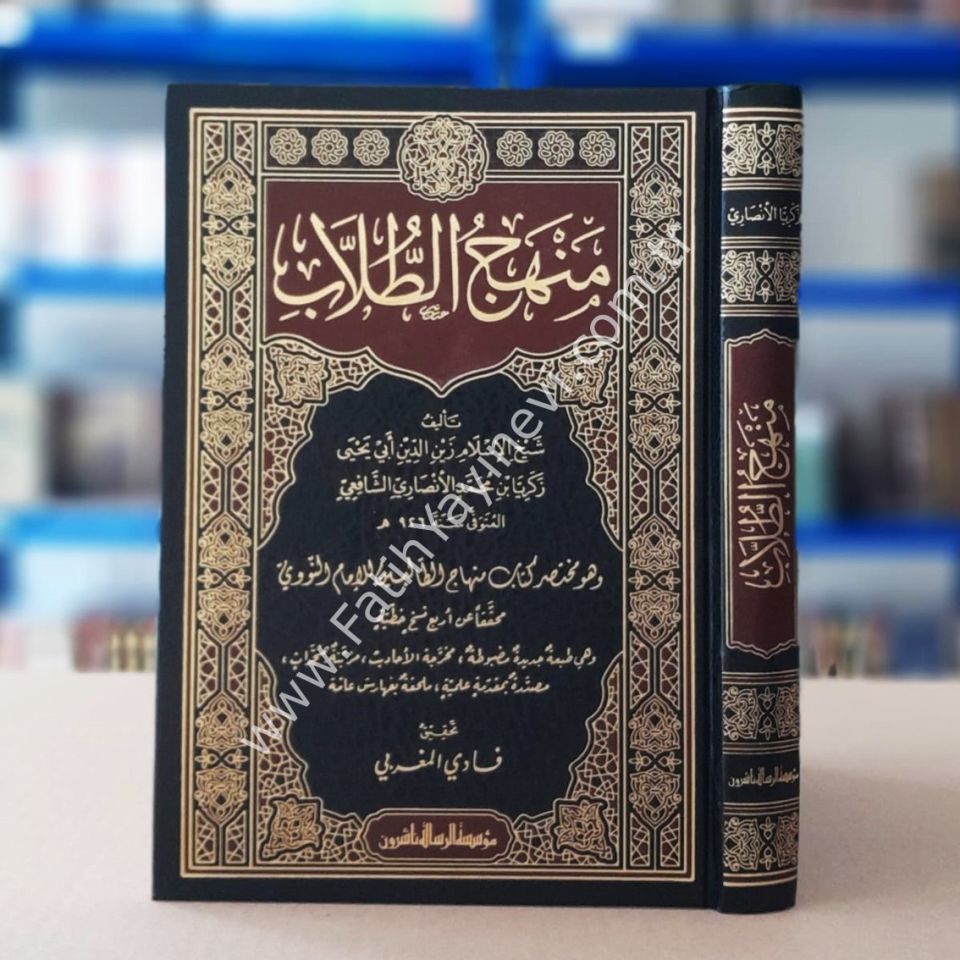 مَنْهَجُ الطُّلَّابِ
تَأليفُ
شَيْخ الإسْلَام زَيْنِ الدِّينِ أَبِي يَحْيَى
زَكَرِيَّا بن محمد الأَنْصَارِيّ الشَّافِعِيّ
المُتَوَفَّى سَنَة هـ
وهو مختصر كتاب منهاج الطالبين للإمام النَّوَوِيّ
محقَّقاً عن أربع نسخ خطيّة
وهي طبعةٌ جديدةٌ مضبوطةٌ، مخرّجة الأحاديث،
مصدَّرةٌ بمقدّمةٍ علميّةٍ، ملحقةٌ بفهارس عامّة
تحقيق
فادي المغربي
مؤسسة الرسالة ناشرون
زكريّا الأَنْصَارِيّ
مَنْهَجُ الطُّلَّابِ
مؤسسة الرسالة ناشرون
www.FatihYayinevi.com.tr